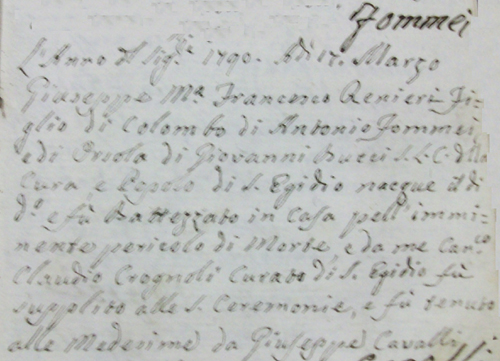 Tommei
L'Anno del Sig.re 1790. Adi 17. Marzo
Giuseppe M.a Francesco Renieri Fi-
glio di Colombo di Antonio Tommei,
e di Orsola di Giovanni Bucci S.L.C. della
Cura e Popolo di S. Egidio nacque il di
d.o e fù Battezzato in Casa pell'immi-
nente pericolo di Morte, e da me Can.co
Claudio Crognoli Curato di S. Egidio fù
supplito alle S. Ceremonie, e fù tenuto
alle Medesime da Giuseppe Cavalli